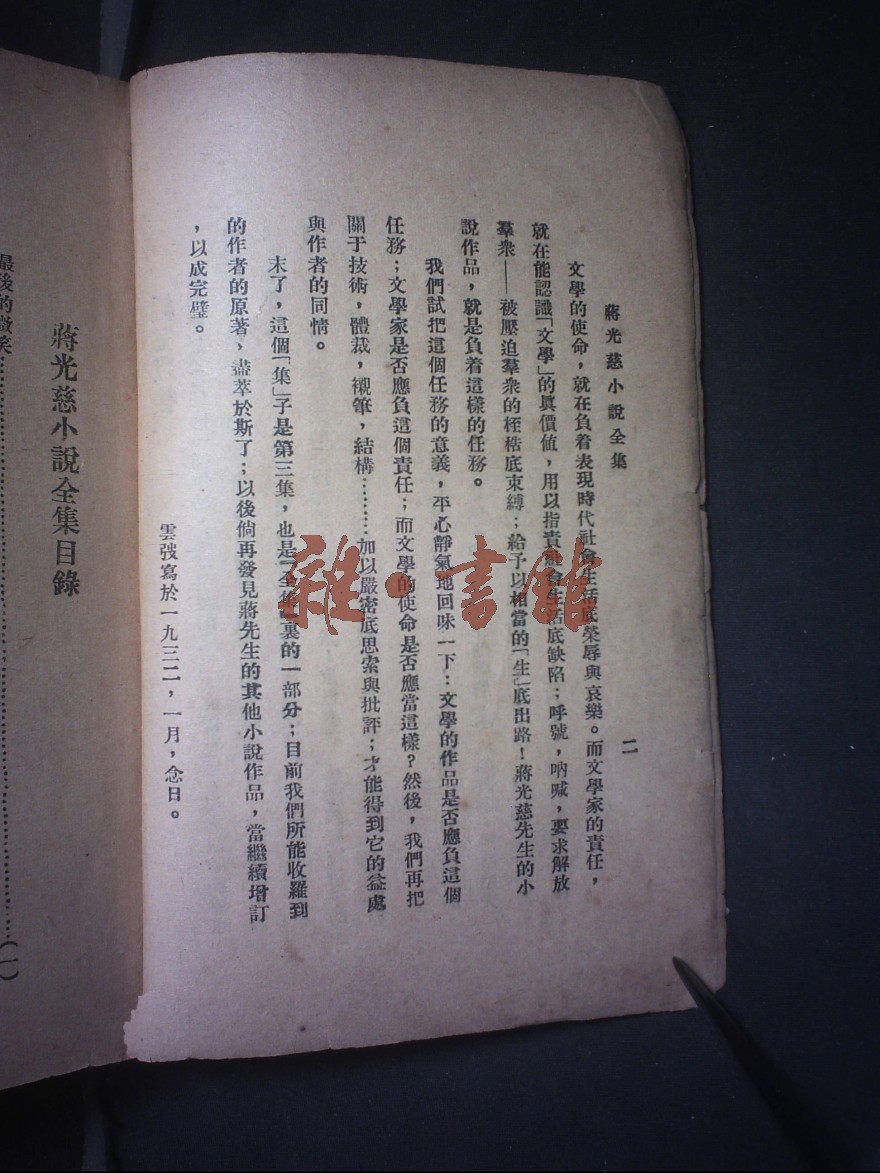 蔣光慈小說全集
二
文學的使命，就在負着表現時代社會生活底榮辱與哀樂。而文學家的責任，
就在能認識「文學」的眞價値，用以指責社會生活底缺陷；呼號，吶喊，要求解放
羣衆——被壓迫羣衆的桎梏底束縛；給予以相當的「生」底出路！蔣光慈先生的小
說作品，就是負着這樣的任務。
我們試把這個任務的意義，平心靜氣地回味一下：文學的作品是否應負這個
任務；文學家是否應負這個責任；而文學的使命是否應當這樣？然後，我們再把
關于技術，體裁，襯筆，結構………加以嚴密底思索與批評；才能得到它的益處
與作者的同情。
末了，這個「集」子是第三集，也是「全集」裏的一部分；目前我們所能收羅到
的作者的原著，盡萃於斯了；以後倘再發見蔣先生的其他小說作品，當繼續增訂
，以成完璧。
雲弢寫於一九三二，一月，念日。
蔣光慈小說全集目錄
最後的微笑…………………………(一)
雜·書館